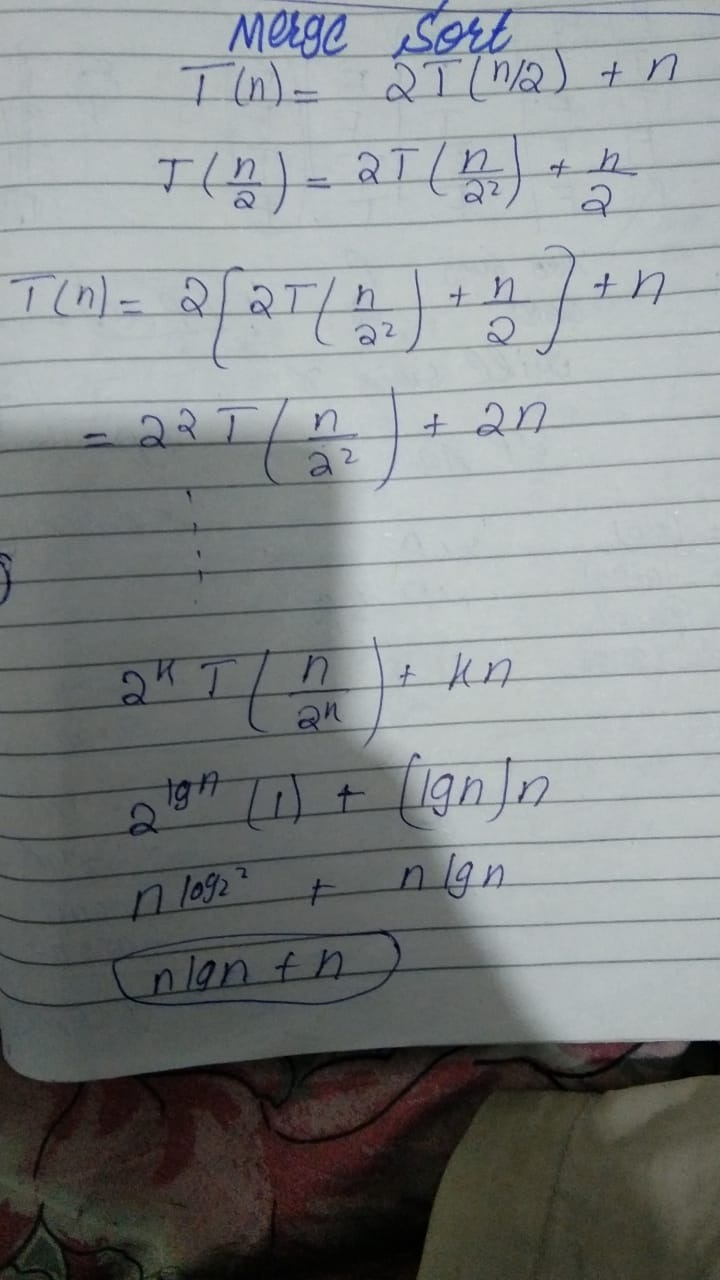 Merge Sort
T(n) = 2T(n/2) + n
T(n/2) = 2T(n/2²) + n/2
T(n) = 2[2T(n/2²) + n/2] + n
= 2²T(n/2²) + 2n
2ᵏ T(n/2ᵏ) + kn
2^lgn (1) + (lgn)n
n log₂² + n lgn
nlgn + n